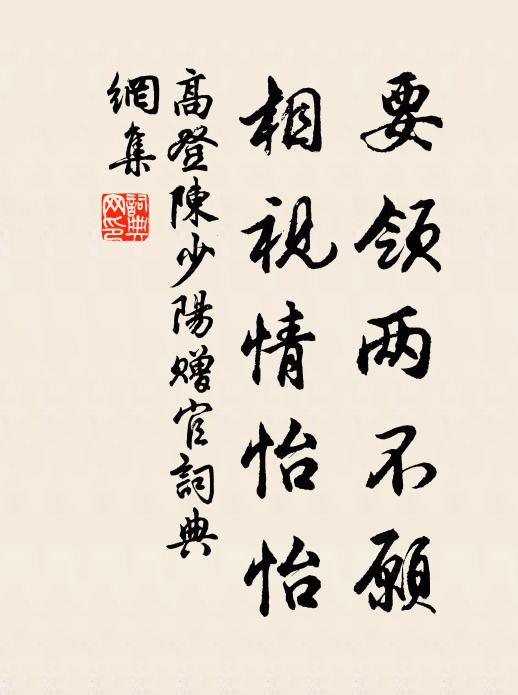 要領两不願
相視情怡怡
高登陳少陽贈官詞典
網集
詞典
网印